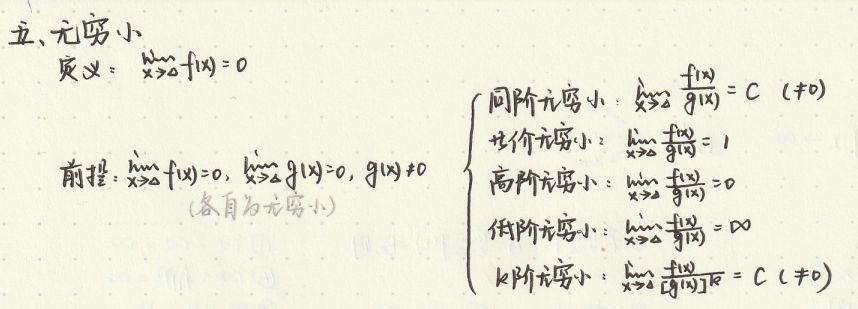 五、无穷小
定义: lim x→Δ f(x)=0
前提: lim x→Δ f(x)=0, lim x→Δ g(x)=0, g(x)≠0
(各自为无穷小)
同阶无穷小: lim x→Δ f(x)/g(x) = C (≠0)
等价无穷小: lim x→Δ f(x)/g(x) = 1
高阶无穷小: lim x→Δ f(x)/g(x) = 0
低阶无穷小: lim x→Δ f(x)/g(x) = ∞
k阶无穷小: lim x→Δ f(x)/[g(x)]^k = C (≠0)